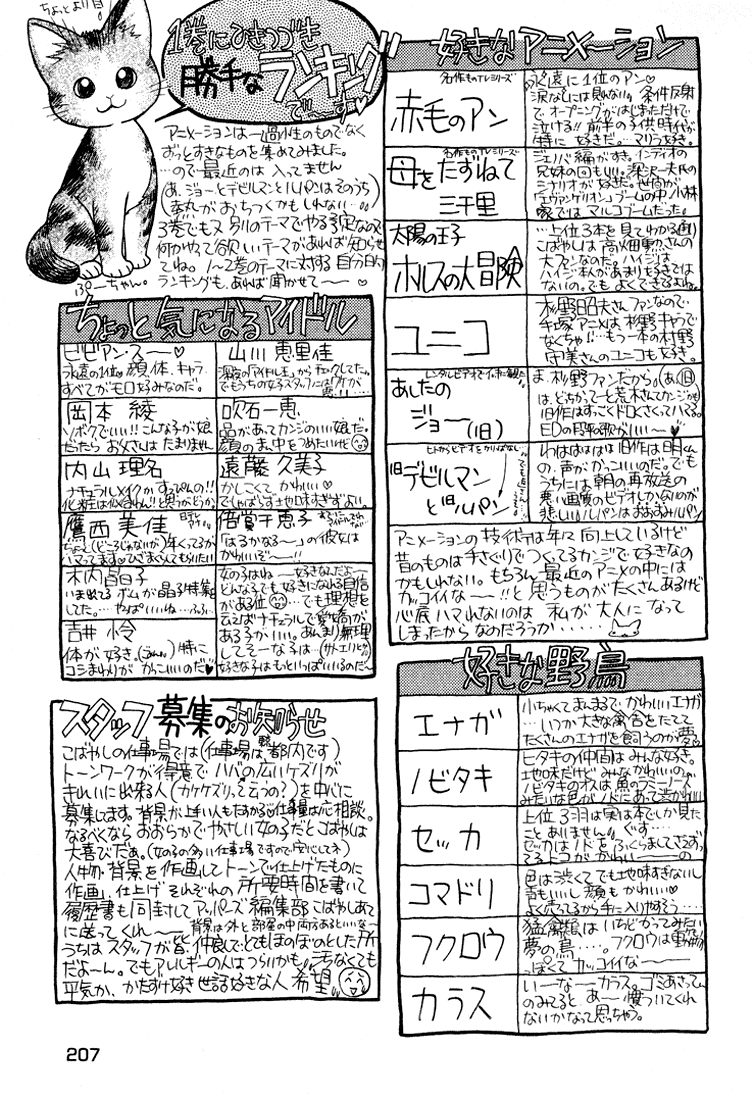 ちょっとより目
1巻にひきつづき
勝手な
ランキング
で～す♡
アニメーションは一過性のものでなく
ずっとすきなものを集めてみました。
…ので最近のは入ってません
3巻でもスタ別のテーマでやる予定なので
何かやって欲しいテーマがあれば知らせ
てね。1～2巻のテーマに対する自分的
ランキングも、あれば聞かせて～～♡
ぷーちゃん。
好きなアニメーション
名作ものTVシリーズ
赤毛のアン
永遠に1位のアン♡
涙なしには見れない。条件反射
で オープニングがはじまっただけで
泣ける!! 前半の子供時代が
特に好きだ。マリラ好き。
名作ものTVシリーズ
母をたずねて
三千里
兄妹の回もいい。深沢一夫氏の
シナリオが好きだ。世間が
「エヴァンゲリオン」ブームの中 小林
家では マルコブームだった。
太陽の王子
ホルスの大冒険
…上位3本を見てわかる通り
こばやしは高畑勲さんの
大ファンなのだ。ハイジは
ハイジ本人があまり好きでは
ないの。でもよくできてるよね。
ユニコ
杉野昭夫さんファンなので
手塚アニメは杉野キャラで
なくちゃ!! …もう一本の村野
守美さんのユニコも好き。
あしたの
ジョー(旧)
ま、杉野ファンだから。(あ、旧
旧作はすっごくドロくさくってハマる。
EDの段平の歌がいい～～♡
旧デビルマン
と旧ルパン
わはははは 旧作は明くん
の声がかっこいいのだ。でも
うちには朝の再放送の
悪い画質のビデオしかないのが
悲しい ルパンはおおすみルパン
アニメーションの技術は年々向上しているけど
昔のものは手さぐりでつくってるカンジで好きなの
かもしれない。もちろん、最近のアニメの中には
カッコイイな～～!!と思うものがたくさんあるけど
心底ハマれないのは 私が大人になって
しまったからなのだろうか……
ちょっと気になるアイドル
ビビアン・スー～♡
永遠の1位。顔、体、キャラ
すべてがモロ好みなのだ。
山川恵里佳
岡本 綾
ソボクでいい!! こんな子が娘
だったら お父さんは たまりません
吹石一恵
品があってカンジのいい娘だ。
顔のまん中をつめたいけど
内山理名
ナチュラルメイクかすっぴんの!!
化粧は似合わん!!と思うがどうか。
遠藤久美子
かしこくて、かわいい♡
でしゃばらず地味すぎずよい。
鷹西美佳
倍賞千恵子
「はるかなる～」の彼女は
かわいいぞ～～!!
木内晶子
してた。…やっぱいいね…ふふ…
吉井 怜
体が好き。(うわっ) 特に
コシまわりが かっこいいのだ♥
女の子はね～～好きなんだよ～
どんな子でも好きになれる自信
がある位 …でも理想を
言えばナチュラルで愛嬌が
ある子がいい。あんまり無理
してそーな子は…(サトエリとか)
好きな子はもといっぱいいるのだ～
スタッフ募集のお知らせ
こばやしの仕事場では(仕事場は都内です)
トーンワークが得意で ハバの広いケズリが
きれいに出来る人(カケケズリ、ってゆうの?)を中心に
募集してます。背景が上手い人もたすかるな 仕事量は応相談。
なるべくなら おおらかでやさしい女の子だとこばやしは
大喜びだぁ。(女の子の多い仕事場ですので安心してネ)
人物・背景を作画してトーンで仕上げたものに
作画、仕上げ それぞれの所要時間を書いて
履歴書も同封してアッパーズ編集部こばやしあて
に送ってくれ～～ 背景は外と部屋の中両方あるといいな～
うちは スタッフが皆、仲良しでとてもほのぼのとした所
だよ～ん。でもアレルギーの人はつらいかも。汚なくても
平気か、かたずけ好き 世話好きな人 希望。
好きな野鳥
エナガ
小ちゃくてまんまるで、かわいいエナガ
…いつか大きな禽舎をたてて
たくさんのエナガを飼うのが夢♡
ノビタキ
ヒタキの仲間はみんな好き。
地味だけど みんなかわいいの。
セッカ
上位3羽は実は本でしか見た
ことありません。ぐす…
セッカはノドをふくらましてさえずっ
てるトコが かわい～～の
コマドリ
色は渋くてでも地味すぎないし
声もいいし 顔もかわいい♡
よく売ってるから手に入りやすそう…
フクロウ
猛禽類は いちどかってみたい
夢の鳥……。フクロウは動物
っぽくてカッコイイな～～～
カラス
い～な～カラス。ゴミあさってん
のみてると あ～懐ついてくれ
ないかなって思っちゃう。
207